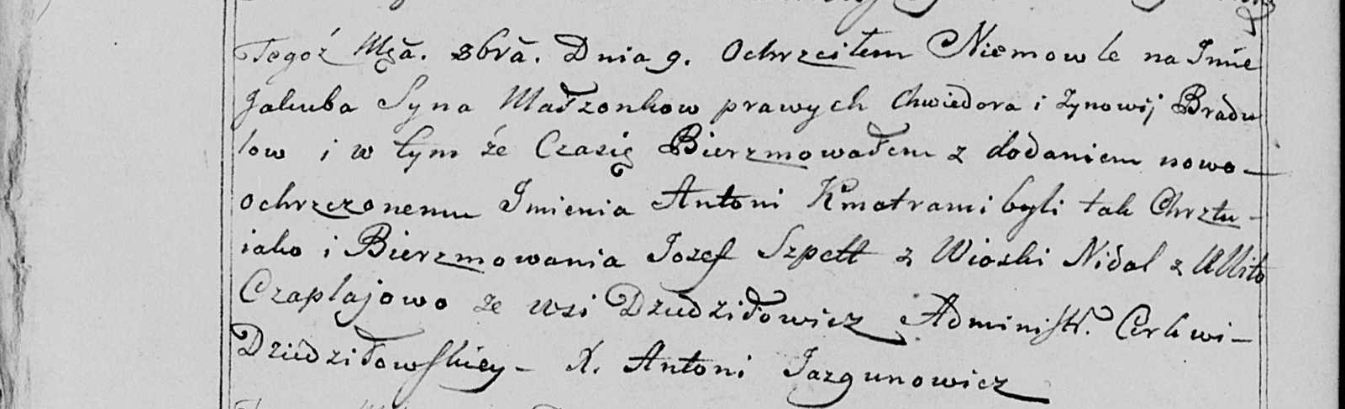 Tegoż Mca. 8bra. Dnia 9. Ochrzciłem Niemowle na Imie
Jakuba Syna Małzonkow prawych Chwiedora i Zynowij Bradu
low i w tym że Czasię Bierzmowałem z dodaniem nowo-
ochrzczonemu Imienia Antoni Kmotrami byli tak Chrztu-
iako i Bierzmowania Jozef Szpett z Wioski Nidal z Ullito
Czaplajowo ze wsi Dziedziłowicz Administr. Cerkwi-
Dziedziłowskiey - X. Antoni Jazgunowicz